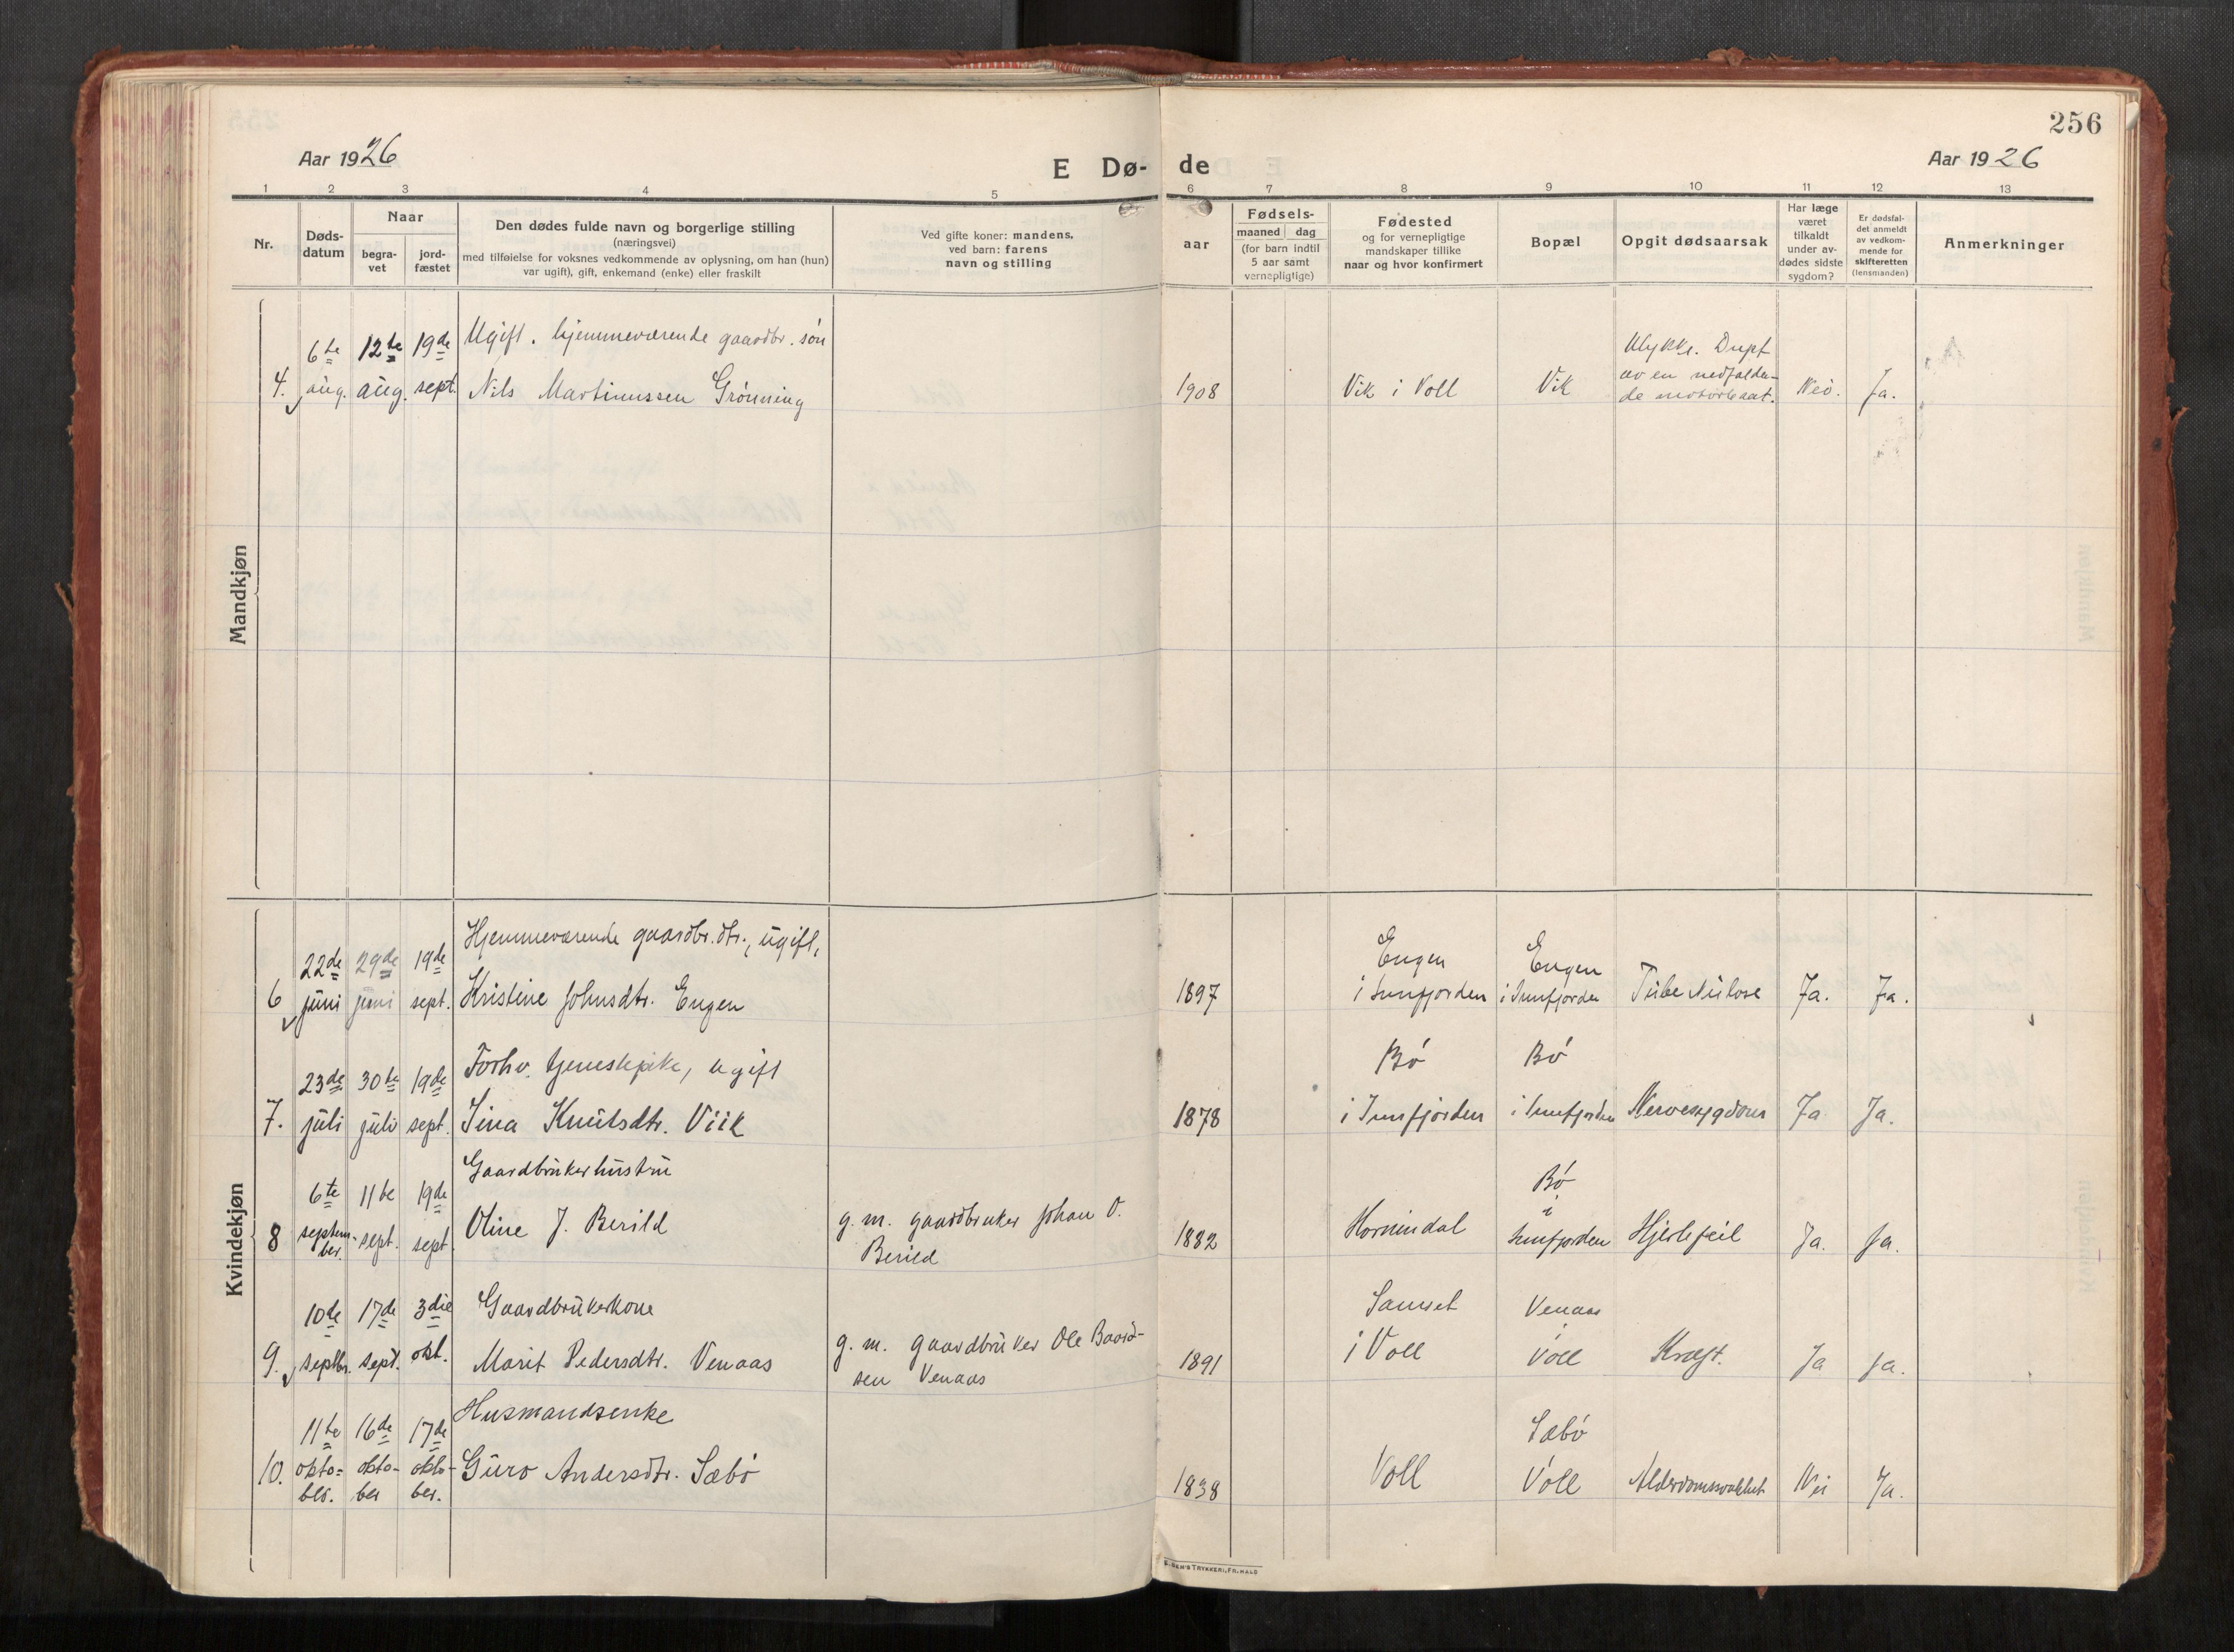 256
Aar 1926
E Dø- de
Aar 1926
1 2 3 4 5 6 7 8 9 10 11 12 13
Nr.
Døds-
datum
Naar
begra-
vet
jord-
fæstet
Den dødes fulde navn og borgerlige stilling
(næringsvei)
med tilføielse for voksnes vedkommende av oplysning, om han (hun)
var ugift), gift, enkemand (enke) eller fraskilt
Ved gifte koner: mandens,
ved barn: farens
navn og stilling
aar
Fødsels-
maaned dag
(for barn indtil
5 aar samt
vernepligtige)
Fødested
og for vernepligtige
mandskaper tillike
naar og hvor konfirmert
Bopæl
Opgit dødsaarsak
Har læge
været
tilkaldt
under av-
dødes sidste
sygdom?
Er dødsfal-
det anmeldt
av vedkom-
mende for
skifteretten
(lensmanden)
Anmerkninger
Mandkjøn
6te 12te 19de Ugift. hjemmeværende gaardbr. søn Ulykke. Dræpt
av en nedfalden-
4. aug. aug. sept. Nils Martinussen Grønning 1908 Vik i Voll Vik de motorbaat. Nei. Ja.
Kvindekjøn
22de 29de 19de Hjemmeværende gaardbr.dtr., ugift, Engen Engen
6 juni juni sept. Kristine Johnsdtr. Engen 1897 i Innfjorden i Innfjorden Tuberkulose Ja. Ja.
23de 30te 19de Forhv. tjenestepike, ugift Bø Bø
7. juli juli sept. Sina Knutsdtr. Viik 1878 i Innfjorden i Innfjorden Nervesygdom Ja Ja.
6te 11te 19de Gaardbrukerhustru Bø
i
8 septem-
ber. sept. sept. Oline J. Berild g. m. gaardbruker Johan O.
Berild 1882 Hornindal Innfjorden Hjertefeil Ja. Ja.
10de 17de 3die Gaardbrukerkone Samset Venaas
i
9. septbr. sept. okt. Marit Pedersdtr. Venaas g. m. gaardbruker Ole Baard-
sen Venaas 1891 i Voll Voll Kræft. Ja Ja.
11te 16de 17de Husmandsenke Sæbø
10. okto-
ber. okto-
ber okto-
ber. Guro Andersdtr. Sæbø 1838 Voll Voll Alderdomssvakhet Nei Ja.